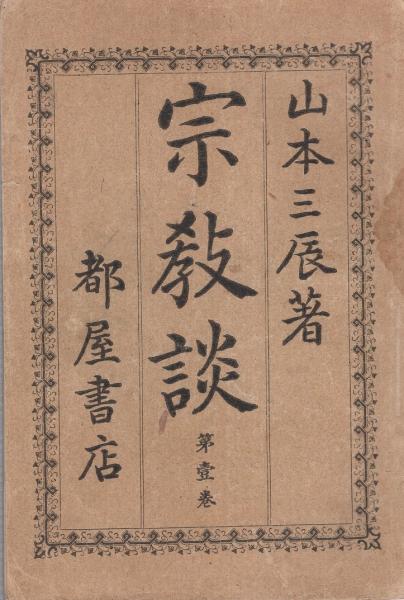 山本三辰著
宗教談
第壹卷
都屋書店